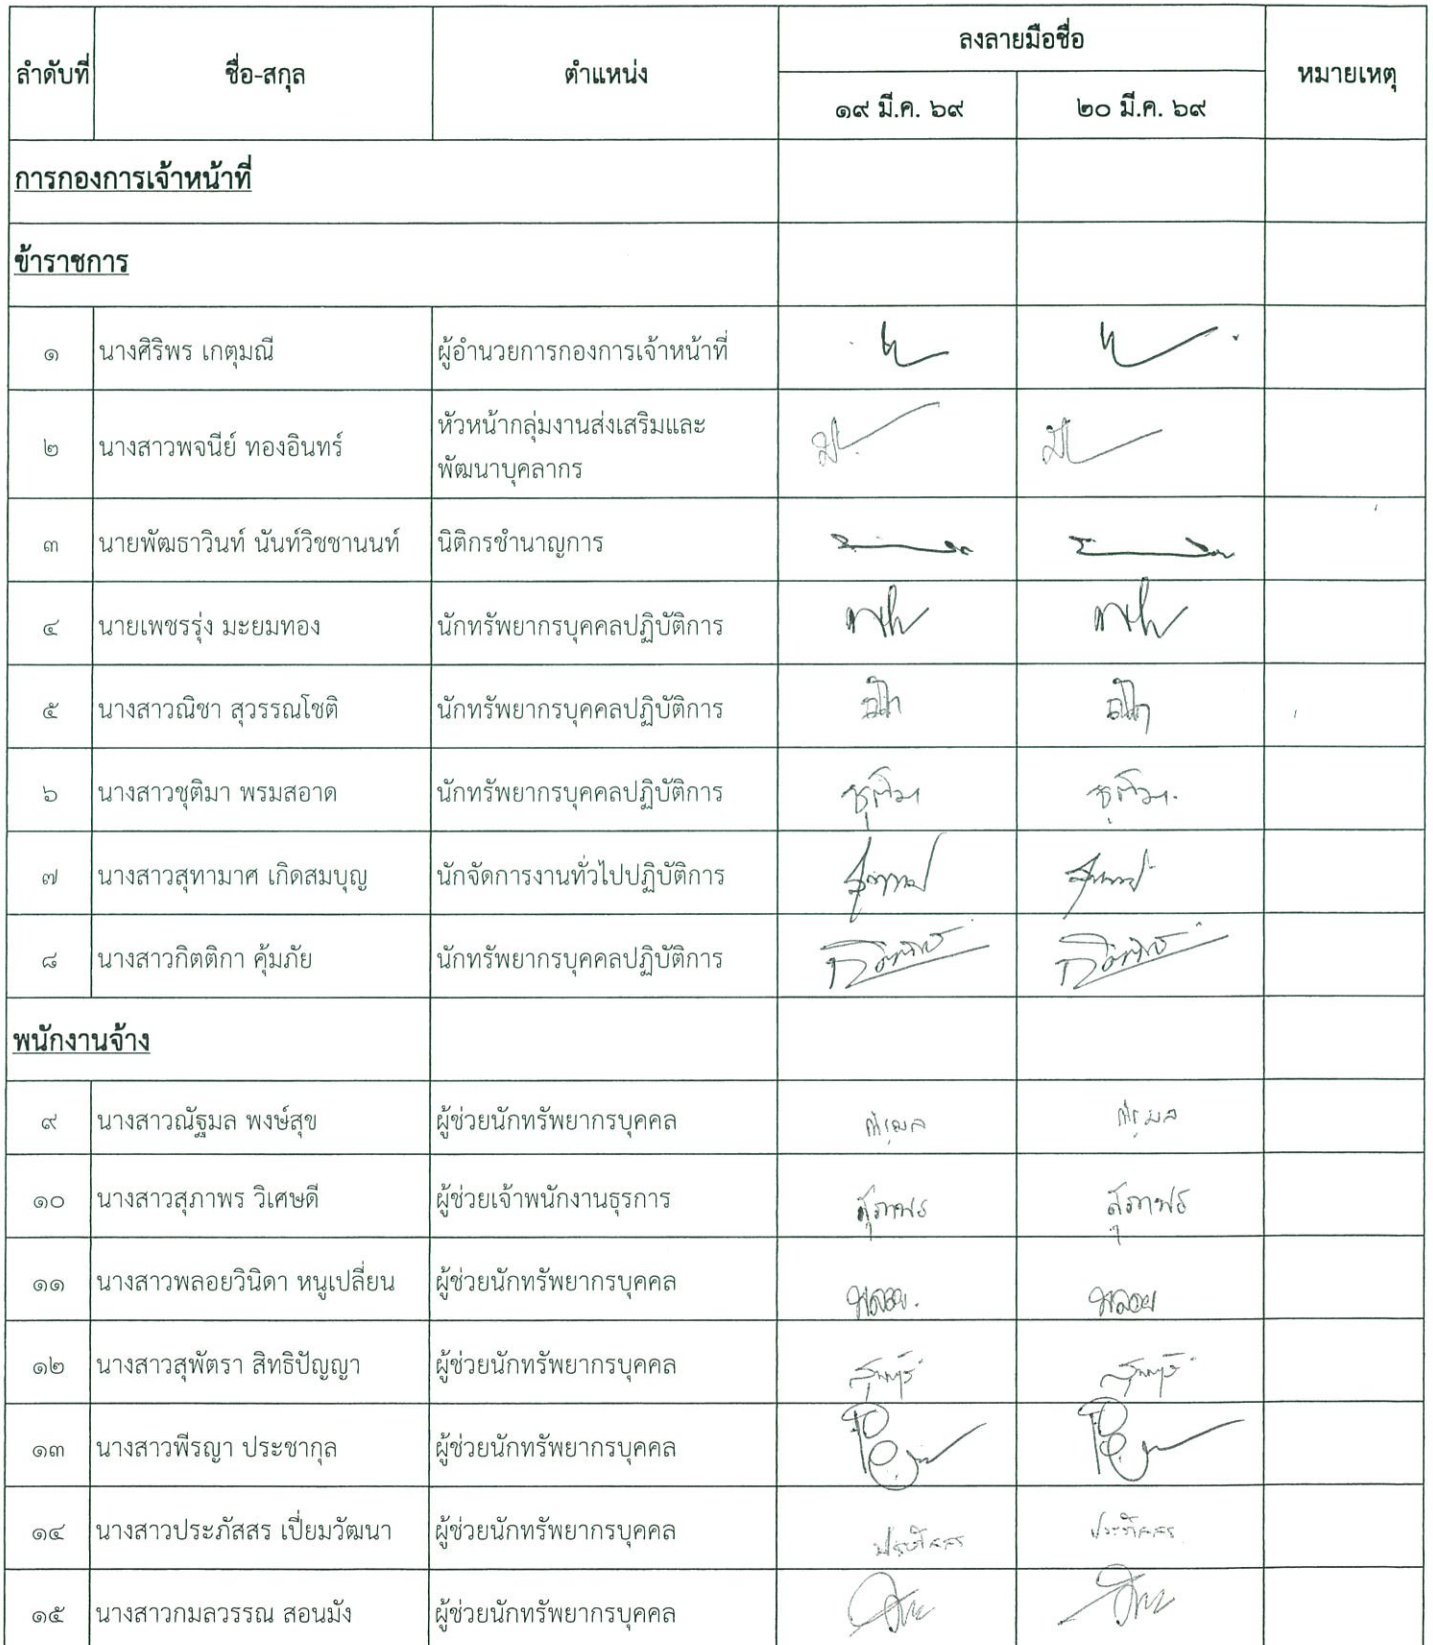 ลำดับที่ ชื่อ-สกุล ตำแหน่ง ลงลายมือชื่อ หมายเหตุ
๑๙ มี.ค. ๖๙ ๒๐ มี.ค. ๖๙
การกองการเจ้าหน้าที่
ข้าราชการ
๑ นางศิริพร เกตุมณี ผู้อำนวยการกองการเจ้าหน้าที่
๒ นางสาวพจนีย์ ทองอินทร์ หัวหน้ากลุ่มงานส่งเสริมและ
พัฒนาบุคลากร
๓ นายพัฒธาวินท์ นันท์วิชชานนท์ นิติกรชำนาญการ
๔ นายเพชรรุ่ง มะยมทอง นักทรัพยากรบุคคลปฏิบัติการ
๕ นางสาวณิชา สุวรรณโชติ นักทรัพยากรบุคคลปฏิบัติการ
๖ นางสาวชุติมา พรมสอาด นักทรัพยากรบุคคลปฏิบัติการ ชุติมา ชุติมา
๗ นางสาวสุทามาศ เกิดสมบุญ นักจัดการงานทั่วไปปฏิบัติการ
๘ นางสาวกิตติกา คุ้มภัย นักทรัพยากรบุคคลปฏิบัติการ
พนักงานจ้าง
๙ นางสาวณัฐมล พงษ์สุข ผู้ช่วยนักทรัพยากรบุคคล ณัฐมล ณัฐมล
๑๐ นางสาวสุภาพร วิเศษดี ผู้ช่วยเจ้าพนักงานธุรการ สุภาพร สุภาพร
๑๑ นางสาวพลอยวินิดา หนูเปลี่ยน ผู้ช่วยนักทรัพยากรบุคคล พลอย. พลอย
๑๒ นางสาวสุพัตรา สิทธิปัญญา ผู้ช่วยนักทรัพยากรบุคคล
๑๓ นางสาวพีรญา ประชากุล ผู้ช่วยนักทรัพยากรบุคคล
๑๔ นางสาวประภัสสร เปี่ยมวัฒนา ผู้ช่วยนักทรัพยากรบุคคล ประภัสสร ประภัสสร
๑๕ นางสาวกมลวรรณ สอนมัง ผู้ช่วยนักทรัพยากรบุคคล